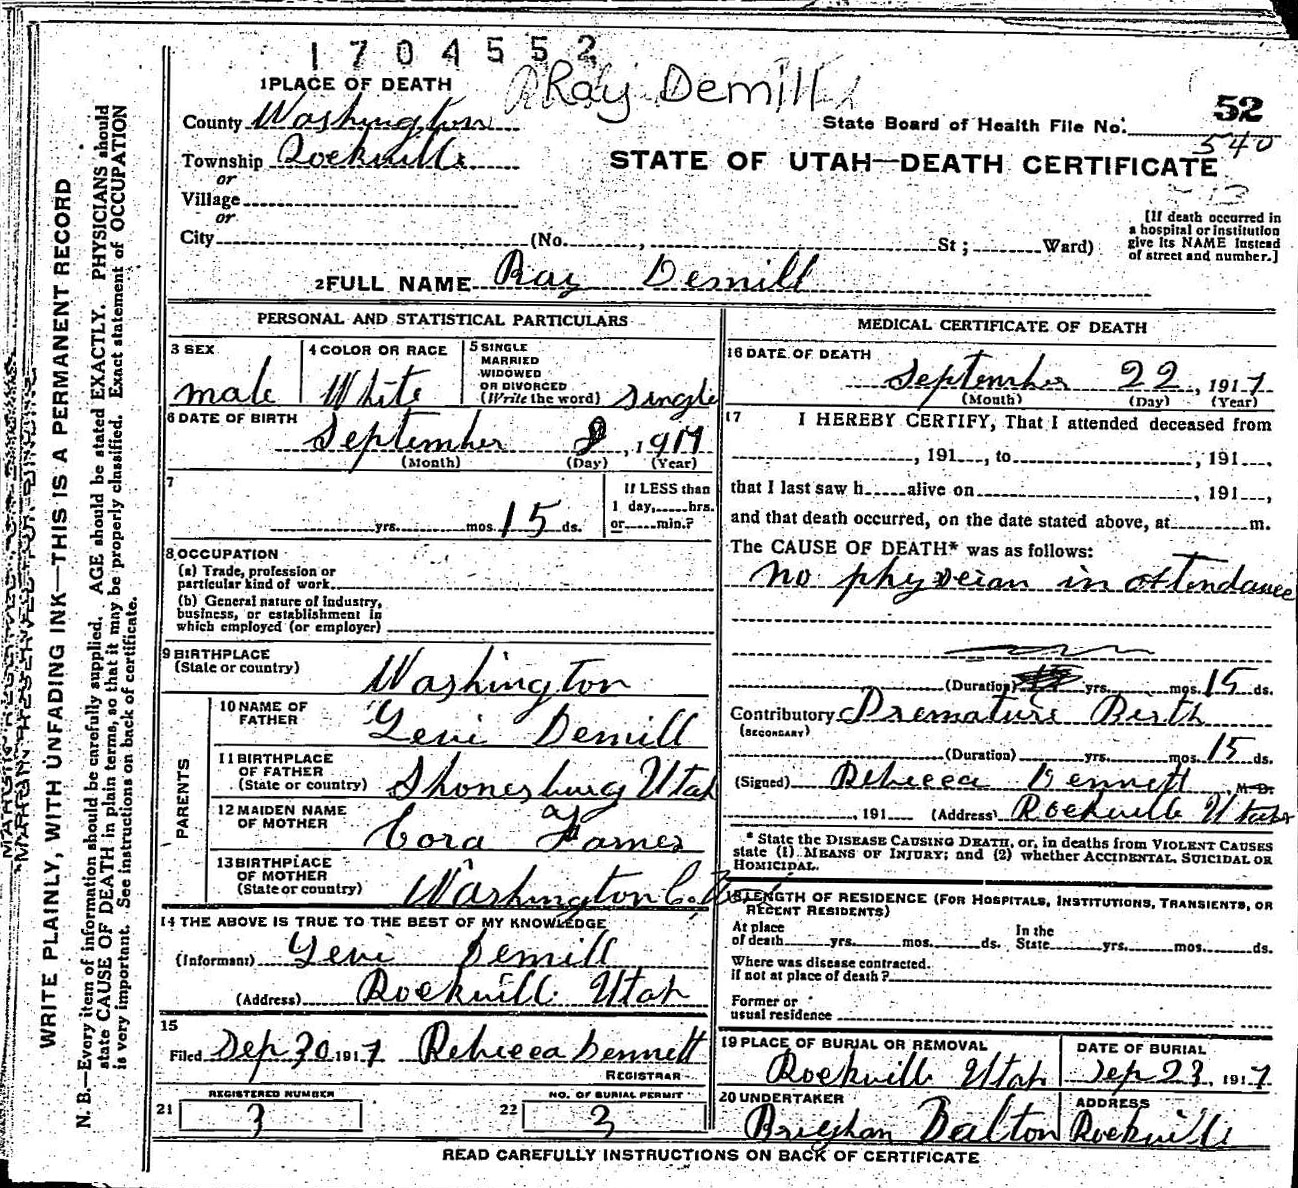 1704552
Ray Demill
1 PLACE OF DEATH
County Washington
52
State Board of Health File No.
540
Township Rockville
STATE OF UTAH—DEATH CERTIFICATE
or
Village
or
City (No. , St; Ward)
[If death occurred in
a hospital or institution
give its NAME instead
of street and number.]
2 FULL NAME Ray Demill
PERSONAL AND STATISTICAL PARTICULARS
3 SEX
male
4 COLOR OR RACE
White
5 SINGLE
MARRIED
WIDOWED
OR DIVORCED
(Write the word) single
6 DATE OF BIRTH
September , 1917
(Month) (Day) (Year)
7
yrs. mos. 15 ds.
If LESS than
1 day, hrs.
or min.?
8 OCCUPATION
(a) Trade, profession or
particular kind of work
(b) General nature of industry,
business, or establishment in
which employed (or employer)
9 BIRTHPLACE
(State or country) Washington
PARENTS
10 NAME OF
FATHER Levi Demill
11 BIRTHPLACE
OF FATHER
(State or country) Shonesburg Utah
12 MAIDEN NAME
OF MOTHER Cora
13 BIRTHPLACE
OF MOTHER
(State or country) Washington Co.
14 THE ABOVE IS TRUE TO THE BEST OF MY KNOWLEDGE
(Informant) Levi Demill
(Address) Rockville Utah
15
Filed Sep 30 1917 Rebecca Dennett
REGISTRAR
REGISTERED NUMBER
21 3
NO. OF BURIAL PERMIT
22 3
MEDICAL CERTIFICATE OF DEATH
16 DATE OF DEATH
September 22, 1917
(Month) (Day) (Year)
17 I HEREBY CERTIFY, That I attended deceased from
, 191 , to , 191 ,
that I last saw h alive on , 191 ,
and that death occurred, on the date stated above, at m.
The CAUSE OF DEATH* was as follows:
no physician in attendance
(Duration) yrs. mos. 15 ds.
Contributory Premature Birth
(SECONDARY)
(Duration) yrs. mos. 15 ds.
(Signed) Rebecca Dennett M. D.
, 191 (Address) Rockville Utah
* State the DISEASE CAUSING DEATH, or, in deaths from VIOLENT CAUSES
state (1) MEANS OF INJURY; and (2) whether ACCIDENTAL, SUICIDAL OR
HOMICIDAL.
18 LENGTH OF RESIDENCE (FOR HOSPITALS, INSTITUTIONS, TRANSIENTS, OR
RECENT RESIDENTS)
At place
of death yrs. mos. ds.
In the
State yrs. mos. ds.
Where was disease contracted.
if not at place of death?
Former or
usual residence
19 PLACE OF BURIAL OR REMOVAL
Rockville Utah
DATE OF BURIAL
Sep 23, 1917
20 UNDERTAKER
Brigham Dalton
ADDRESS
Rockville
READ CAREFULLY INSTRUCTIONS ON BACK OF CERTIFICATE
WRITE PLAINLY, WITH UNFADING INK—THIS IS A PERMANENT RECORD
N. B.—Every item of information should be carefully supplied. AGE should be stated EXACTLY. PHYSICIANS should
state CAUSE OF DEATH in plain terms, so that it may be properly classified. Exact statement of OCCUPATION
is very important. See instructions on back of certificate.